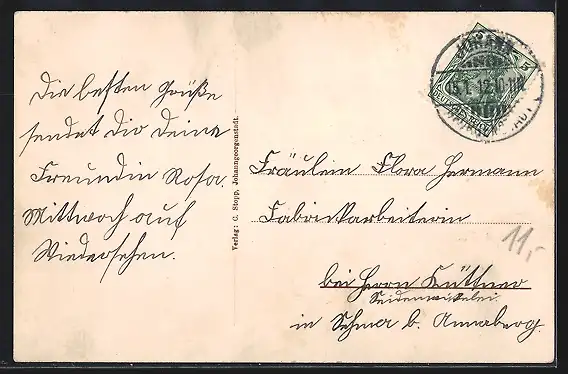 Die besten Grüße
sendet dir deine
Freundin Rosa.
Mittwoch auf
Wiedersehen.
Verlag: C. Stopp, Johanngeorgenstadt.
JOHANN-
15.1.12.10-11N.
5
Fräulein Flora Hermann
Fabrikarbeiterin
11,-
bei Herrn Küttner
Seidenwickelei
in Sehma b. Annaberg.